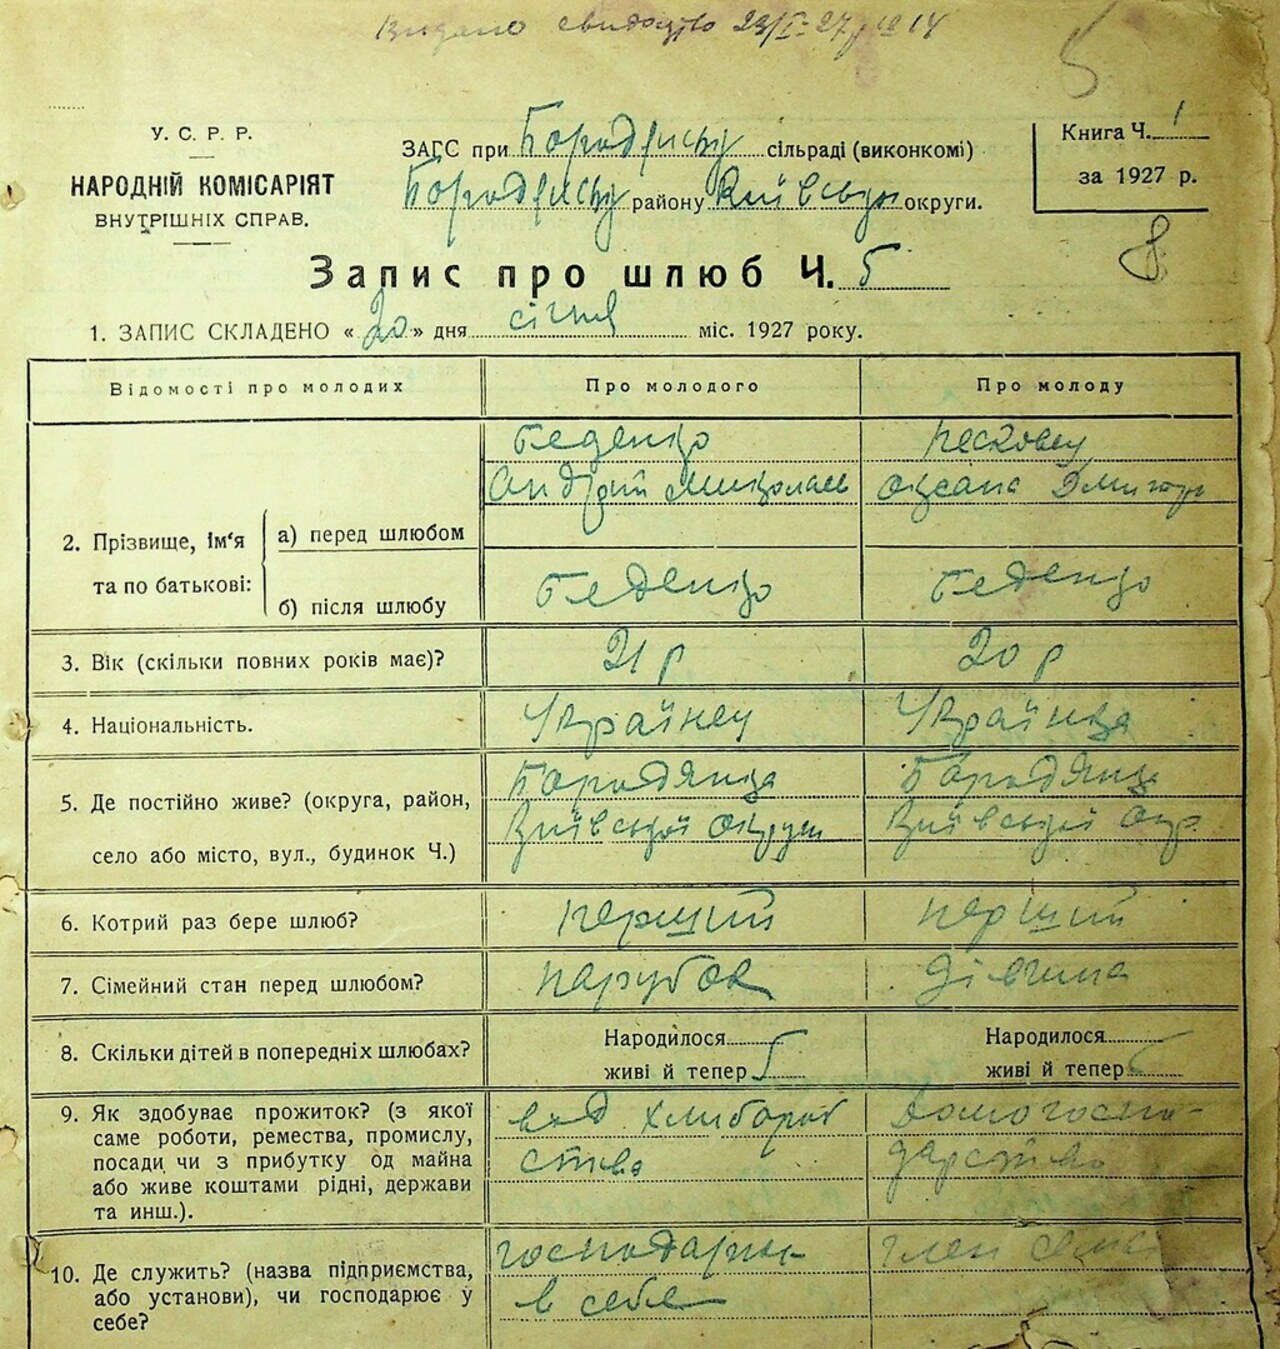 Видано свидоцтво 23/I-27р № 14
5
У. С. Р. Р.
НАРОДНІЙ КОМІСАРІЯТ
ВНУТРІШНІХ СПРАВ.
ЗАГС при Бородянську сільраді (виконкомі)
Бородянську району Київської округи.
Книга Ч. 1
за 1927 р.
8
Запис про шлюб Ч. 5
1. ЗАПИС СКЛАДЕНО «20» дня січня міс. 1927 року.
Відомості про молодих
Про молодого
Про молоду
2. Прізвище, ім‘я та по батькові:
а) перед шлюбом
Беденко
Андрій Миколаєв
Оксана Дмитр
б) після шлюбу
Беденко
Беденко
3. Вік (скільки повних років має)?
21 р
20 р
4. Національність.
Українец
Українка
5. Де постійно живе? (округа, район,
село або місто, вул., будинок Ч.)
Бородянка
Київської округи
Бородянка
Київської окр.
6. Котрий раз бере шлюб?
перший
перший
7. Сімейний стан перед шлюбом?
парубок
дівчина
8. Скільки дітей в попередніх шлюбах?
Народилося
живі й тепер
Народилося
живі й тепер
9. Як здобуває прожиток? (з якої
саме роботи, ремества, промислу,
посади чи з прибутку од майна
або живе коштами рідні, держави
та инш.).
від хлибороб
ства
домогоспо-
дарство
10. Де служить? (назва підприємства,
або установи), чи господарює у
себе?
в себе
член сем